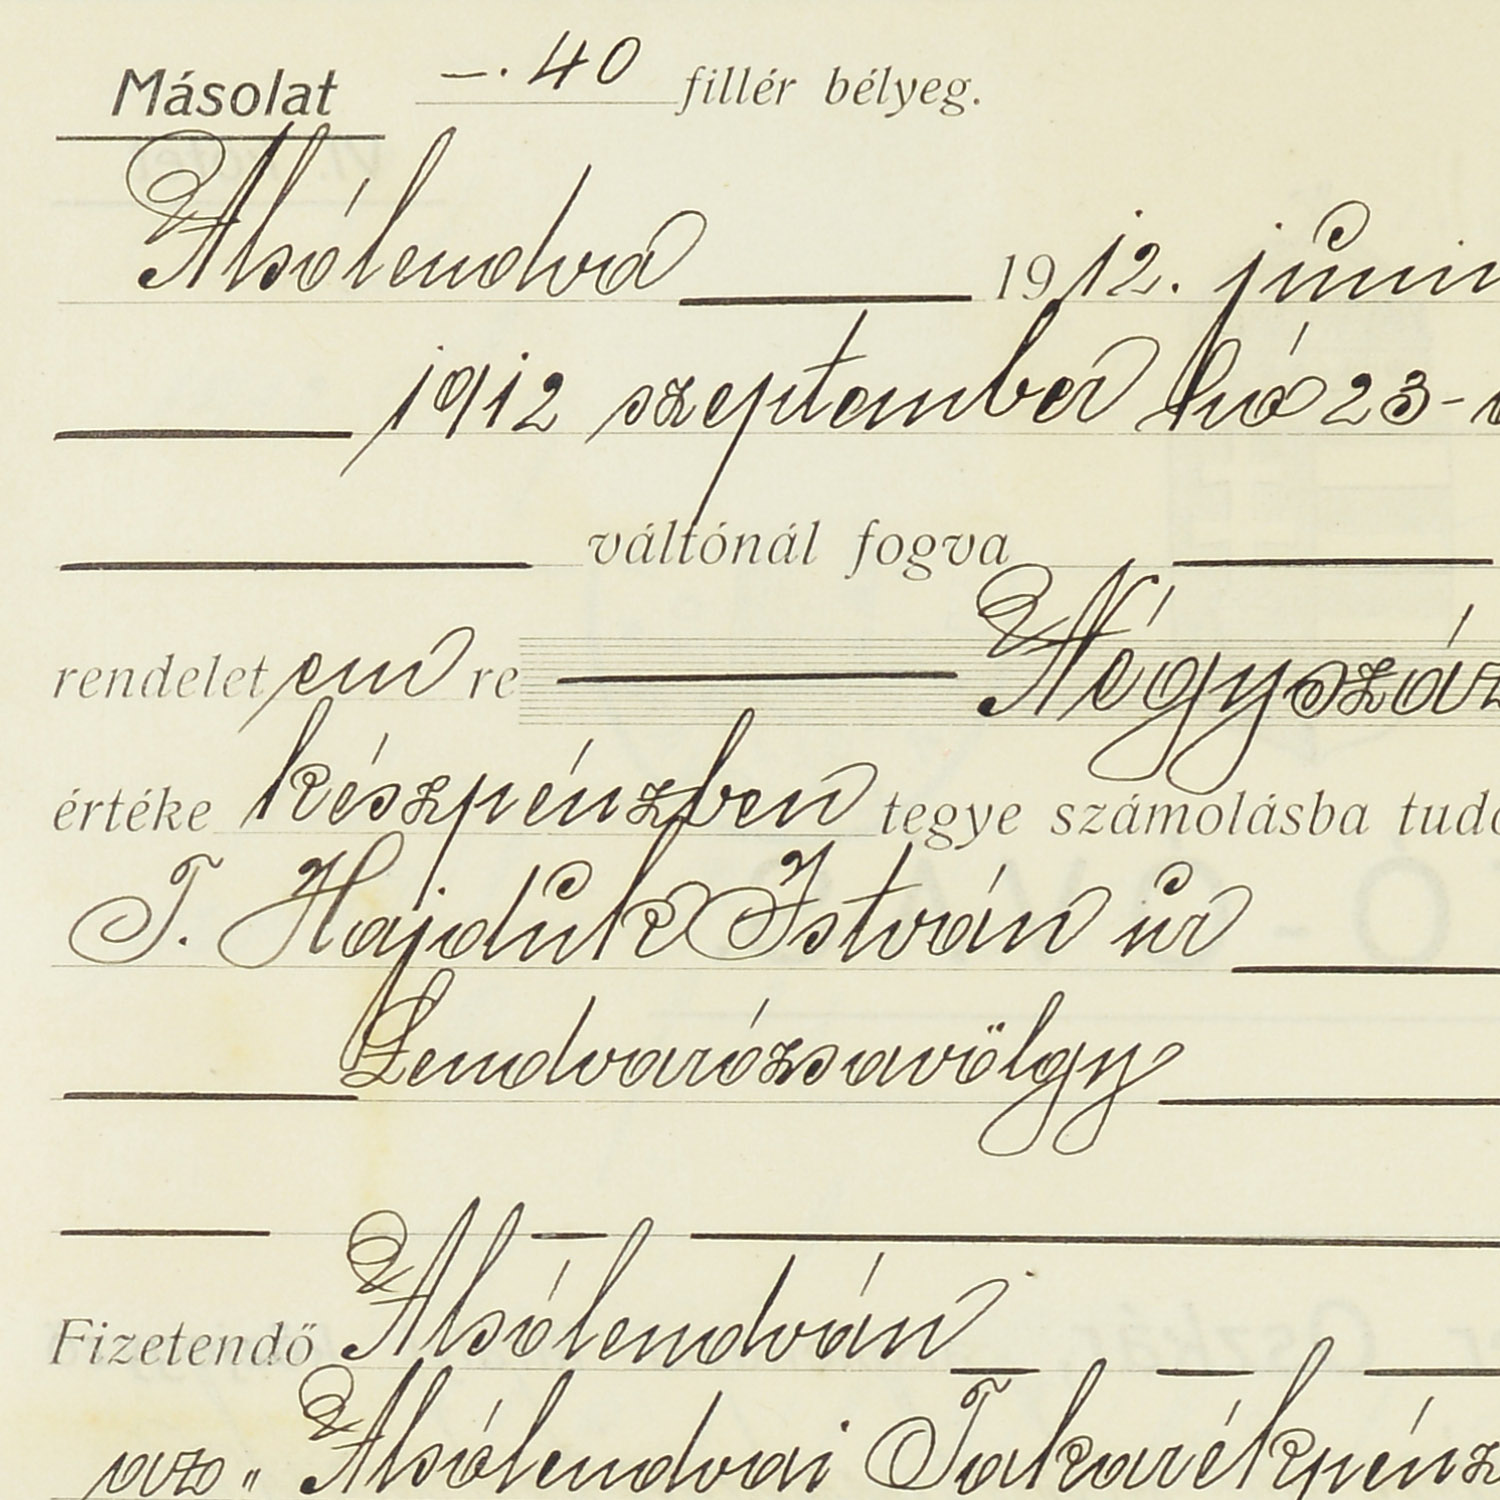 Másolat —. 40 fillér bélyeg.
Alsólendva 1912. junin
1912 szeptember hó 23-
váltónál fogva
rendelet em re Négyszáz
értéke készpénzben tegye számolásba tudó
T. Hajduk István úr
Lendvarózsavölgy
Fizetendő Alsólendván
az „Alsólendvai Takarékpénz